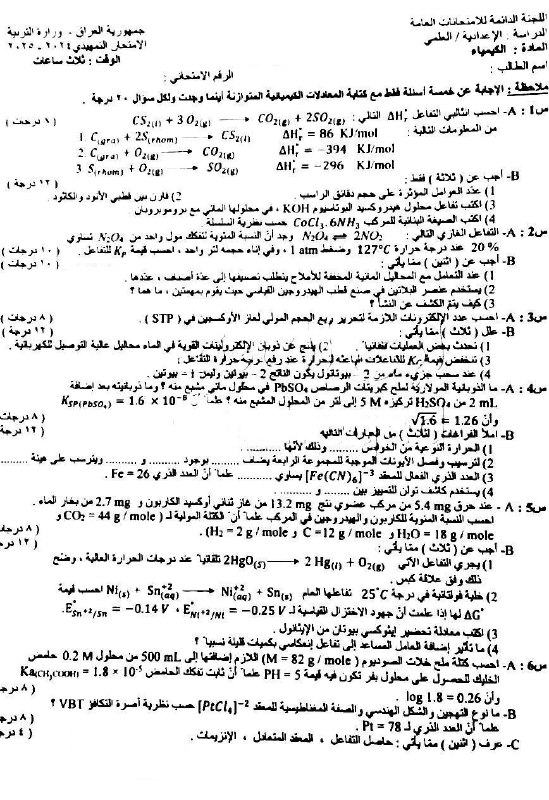 اللجنة الدائمة للامتحانات العامة
الدراسة : الإعدادية / العلمي
المادة : الكيمياء
اسم الطالب :
جمهورية العراق - وزارة التربية
الامتحان التمهيدي ٢٠٢٤ - ٢٠٢٥
الوقت : ثلاث ساعات
الرقم الامتحاني :
ملاحظة : الإجابة عن خمسة أسئلة فقط مع كتابة المعادلات الكيميائية المتوازنة أينما وجدت ولكل سؤال ٢٠ درجة .
س1 : A- احسب انثالبي التفاعل ΔH°r التالي : CS2(l) + 3 O2(g) ⟶ CO2(g) + 2SO2(g) ( ٨ درجات )
من المعلومات التالية : 1. C(gra) + 2S(rhom) ⟶ CS2(l) ΔH°r = 86 KJ/mol
2. C(gra) + O2(g) ⟶ CO2(g) ΔH°r = −394 KJ/mol
3. S(rhom) + O2(g) ⟶ SO2(g) ΔH°r = −296 KJ/mol
B- أجب عن ( ثلاثة ) فقط : ( ١٢ درجة )
1) عدّد العوامل المؤثرة على حجم دقائق الراسب . 2) قارن بين قطبي الأنود والكاثود .
3) اكتب تفاعل محلول هيدروكسيد البوتاسيوم KOH ، في محلولها المائي مع بروموبروبان
4) اكتب الصيغة البنائية للمركب CoCl3.6NH3 حسب نظرية السلسلة .
س2 : A- التفاعل الغازي التالي : N2O4 ⇌ 2NO2 وجد أنّ النسبة المئوية لتفكك مول واحد من N2O4 تساوي
20 % عند درجة حرارة 127°C وضغط 1 atm ، وفي إناء حجمه لتر واحد ، احسب قيمة KP للتفاعل . ( ١٠ درجات )
B- أجب عن ( اثنين ) مما يأتي : ( ١٠ درجات )
1) عند التعامل مع المحاليل المائية المخففة للأملاح يتطلب تصنيفها إلى عدة أصناف ، عددها .
2) يستخدم عنصر البلاتين في صنع قطب الهيدروجين القياسي حيث يقوم بمهمتين ، ما هما ؟
3) كيف يتم الكشف عن النشأ ؟
س3 : A- احسب عدد الإلكترونات اللازمة لتحرير ربع الحجم المولي لغاز الأوكسجين في ( STP ) . ( ٨ درجات )
B- علل ( ثلاث ) ممّا يأتي : ( ١٢ درجة )
1) تحدث بعض العمليات تلقائيا. 2) ينتج عن ذوبان الإلكتروليتات القوية في الماء محاليل عالية التوصيل للكهربائية .
3) تنخفض قيمة Kc للتفاعلات الباعثة للحرارة عند رفع درجة حرارة التفاعل .
4) عند سحب جزيء ماء من 2 – بيوتانول يكون الناتج 2 – بيوتين وليس 1 – بيوتين .
س4 : A- ما الذوبانية المولارية لملح كبريتات الرصاص PbSO4 في محلول مائي مشبع منه ؟ وما ذوبانيته بعد إضافة
2 mL من H2SO4 تركيزه 5 M إلى لتر من المحلول المشبع منه ؟ علماً أنّ KSP(PbSO4) = 1.6 × 10−8
وأن √1.6 = 1.26 ( ٨ درجات )
B- املأ الفراغات ( لثلاث ) من العبارات التالية : ( ١٢ درجة )
1) الحرارة النوعية من الخواص .......... وذلك لأنها ..........
2) لترسيب وفصل الأيونات الموجبة للمجموعة الرابعة يضاف .......... بوجود .......... و .......... ويترسب على هيئة ..........
3) العدد الذري الفعال للمعقد [Fe(CN)6]−3 يساوي .......... علماً أنّ العدد الذري Fe = 26 .
4) يستخدم كاشف تولن للتمييز بين .......... و ..........
س5 : A- عند حرق 5.4 mg من مركب عضوي نتج 13.2 mg من غاز ثنائي أوكسيد الكاربون و 2.7 mg من بخار الماء .
احسب النسبة المئوية للكاربون والهيدروجين في المركب علماً أنّ الكتلة المولية لـ ( CO2 = 44 g / mole و
H2O = 18 g / mole و C = 12 g / mole و H2 = 2 g / mole ) . ( ٨ درجات )
B- أجب عن ( ثلاث ) ممّا يأتي : ( ١٢ درجة )
1) يجري التفاعل الآتي 2HgO(S) ⟶ 2 Hg(l) + O2(g) تلقائياً عند درجات الحرارة العالية ، وضح
ذلك وفق علاقة كبس .
2) خلية فولتائية في درجة 25°C تفاعلها العام Ni(s) + Sn+2(aq) ⟶ Ni+2(aq) + Sn(s) احسب قيمة
ΔG° لها إذا علمت أنّ جهود الاختزال القياسية لـ E°Ni+2/Ni = −0.25 V ، E°Sn+2/Sn = −0.14 V .
3) اكتب معادلة تحضير إيثوكسي بيوتان من الإيثانول .
4) ما تأثير إضافة العامل المساعد إلى تفاعل إنعكاسي بكميات قليلة نسبياً ؟
س6 : A- احسب كتلة ملح خلات الصوديوم ( M = 82 g / mole ) اللازم إضافتها إلى 500 mL من محلول 0.2 M حامض
الخليك للحصول على محلول بفر تكون فيه قيمة PH = 5 علماً أنّ ثابت تفكك الحامض Ka(CH3COOH) = 1.8 × 10−5
وأن log 1.8 = 0.26 . ( ٨ درجة )
B- ما نوع التهجين والشكل الهندسي والصفة المغناطيسية للمعقد [PtCl4]−2 حسب نظرية أصرة التكافؤ VBT ؟
علماً أنّ العدد الذري لـ Pt = 78 . ( ٨ درجا
C- عرف ( اثنين ) ممّا يأتي : حاصل التفاعل ، المعقد المتعادل ، الإنزيمات . ( ٤ درج